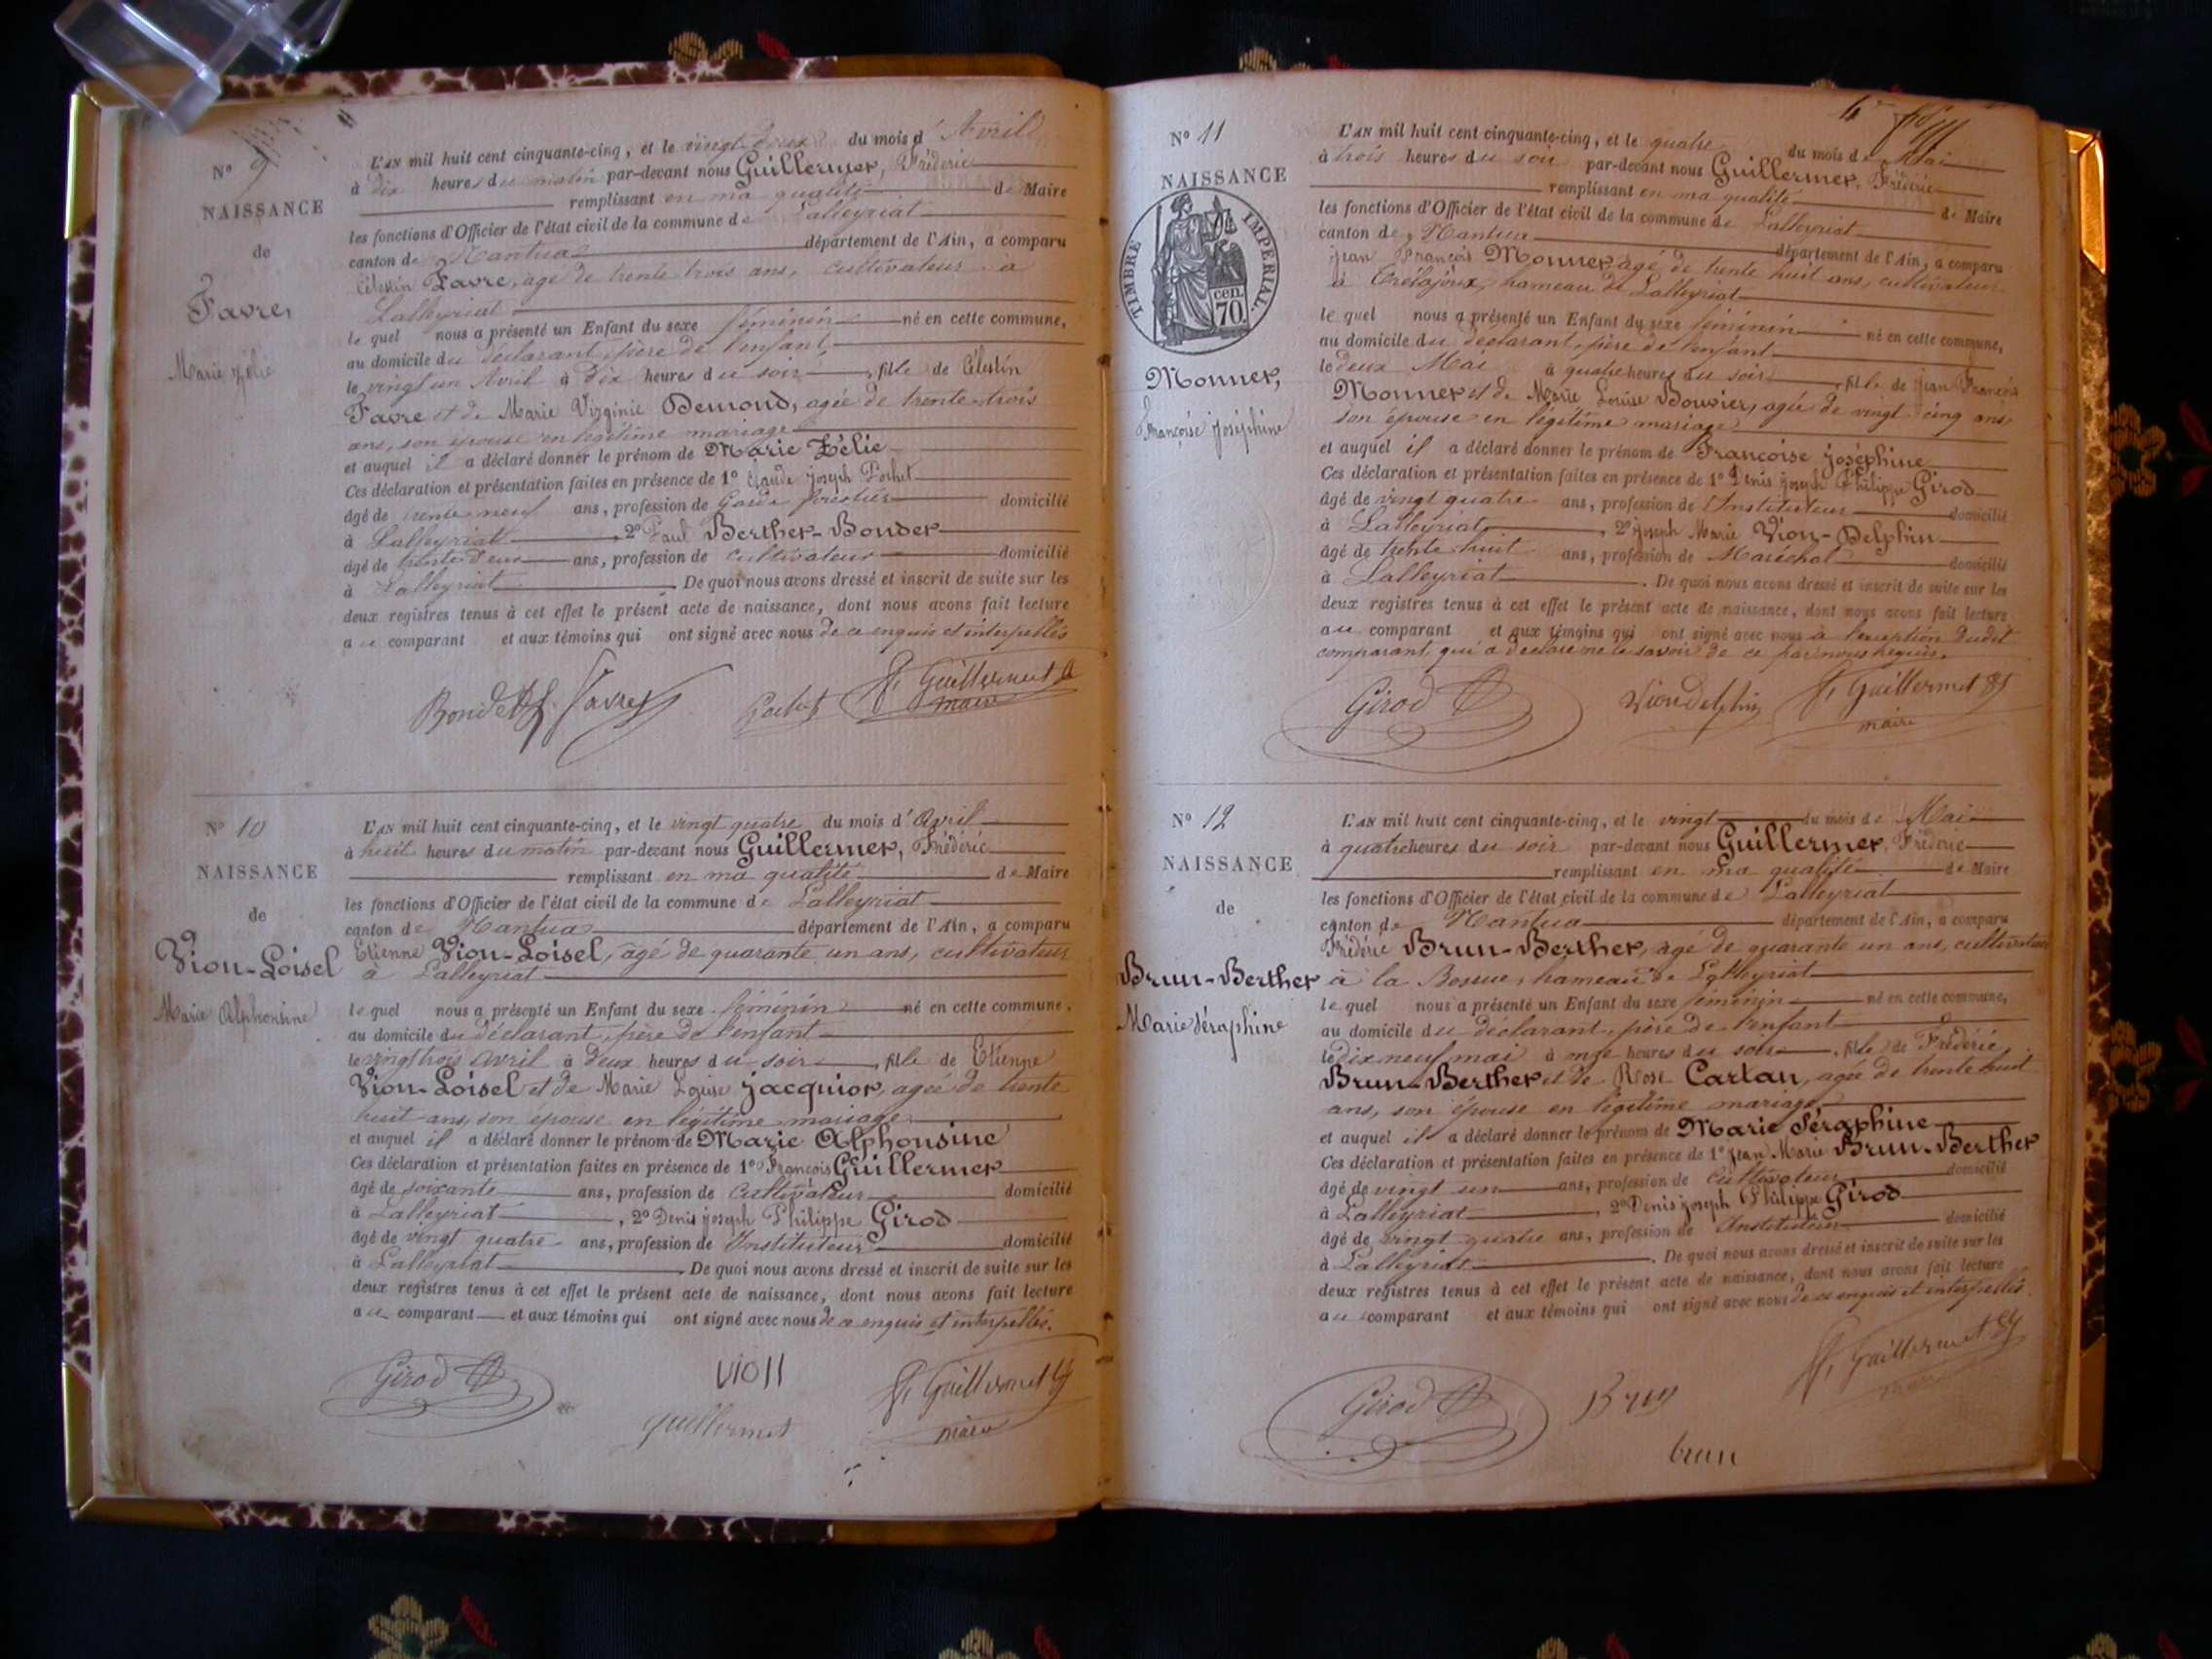 N° 9
NAISSANCE
de
Favre,
Marie Zélie
L'AN mil huit cent cinquante-cinq, et le vingt deux du mois d'Avril
à dix heures du matin par-devant nous Guillermet, Fréderic
remplissant en ma qualité de Maire
les fonctions d'Officier de l'état civil de la commune de Lalleyriat
canton de Nantua département de l'Ain, a comparu
Célestin Favre, agé de trente trois ans, cultivateur à
Lalleyriat
le quel nous a présenté un Enfant du sexe féminin né en cette commune,
au domicile du déclarant, père de l'enfant,
le vingt un Avril à dix heures du soir, fille de Célestin
Favre et de Marie Virginie Demond, agée de trente-trois
ans, son épouse en légitime mariage
et auquel il a déclaré donner le prénom de Marie Zélie
Ces déclaration et présentation faites en présence de 1° Claude Joseph Pochet
âgé de trente neuf ans, profession de Garde forestier domicilié
à Lalleyriat, 2° Paul Berthet-Bondet
âgé de trente deux ans, profession de cultivateur domicilié
à Lalleyriat. De quoi nous avons dressé et inscrit de suite sur les
deux registres tenus à cet effet le présent acte de naissance, dont nous avons fait lecture
au comparant et aux témoins qui ont signé avec nous de ce enquis et interpellés
Bondet Favre Pochet F. Guillermet
maire
N° 10
NAISSANCE
de
Vion-Loisel
Marie Alphonsine
L'AN mil huit cent cinquante-cinq, et le vingt quatre du mois d'Avril
à huit heures du matin par-devant nous Guillermet, Frédéric
remplissant en ma qualité de Maire
les fonctions d'Officier de l'état civil de la commune de Lalleyriat
canton de Nantua département de l'Ain, a comparu
Etienne Vion-Loisel, âgé de quarante un ans, cultivateur
à Lalleyriat
le quel nous a présenté un Enfant du sexe féminin né en cette commune,
au domicile du déclarant, père de l'enfant
le vingt trois avril à deux heures du soir, fille de Etienne
Vion-Loisel et de Marie Louise Jacquiot, agée de trente
huit ans, son épouse en légitime mariage
et auquel il a déclaré donner le prénom de Marie Alphonsine
Ces déclaration et présentation faites en présence de 1° François Guillermet
âgé de soixante ans, profession de Cultivateur domicilié
à Lalleyriat, 2° Denis joseph Philippe Girod
âgé de vingt quatre ans, profession de Instituteur domicilié
à Lalleyriat. De quoi nous avons dressé et inscrit de suite sur les
deux registres tenus à cet effet le présent acte de naissance, dont nous avons fait lecture
au comparant et aux témoins qui ont signé avec nous de ce enquis et interpellés.
Girod vion F. Guillermet
guillermet maire
N° 11
NAISSANCE
TIMBRE IMPERIAL.
70 cen.
Monnet,
Françoise joséphine
L'AN mil huit cent cinquante-cinq, et le quatre du mois de Mai
à trois heures du soir par-devant nous Guillermet, Frédéric
remplissant en ma qualité de Maire
les fonctions d'Officier de l'état civil de la commune de Lalleyriat
canton de Nantua département de l'Ain, a comparu
jean François Monnet, agé de trente huit ans, cultivateur
à hameau de Lalleyriat
le quel nous a présenté un Enfant du sexe féminin né en cette commune,
au domicile du déclarant, père de l'enfant
le deux Mai à quatre heures du soir, fille de jean François
Monnet et de Marie Louise Bouvier, agée de vingt cinq ans,
son épouse en légitime mariage
et auquel il a déclaré donner le prénom de Françoise Joséphine
Ces déclaration et présentation faites en présence de 1° Denis joseph Philippe Girod
âgé de vingt quatre ans, profession de Instituteur domicilié
à Lalleyriat, 2° joseph Marie Vion-Delphin
âgé de trente huit ans, profession de Maréchal domicilié
à Lalleyriat. De quoi nous avons dressé et inscrit de suite sur les
deux registres tenus à cet effet le présent acte de naissance, dont nous avons fait lecture
au comparant et aux témoins qui ont signé avec nous à l'exception dudit
comparant, qui a déclaré ne le savoir de ce par nous requis.
Girod Vion delphin F. Guillermet
maire
N° 12
NAISSANCE
de
Brun-Berthet
Marie Séraphine
L'AN mil huit cent cinquante-cinq, et le vingt du mois de Mai
à quatre heures du soir par-devant nous Guillermet, Frédéric
remplissant en ma qualité de Maire
les fonctions d'Officier de l'état civil de la commune de Lalleyriat
canton de Nantua département de l'Ain, a comparu
Frédéric Brun-Berthet, agé de quarante un ans, cultivateur
à la hameau de Lalleyriat
le quel nous a présenté un Enfant du sexe féminin né en cette commune,
au domicile du déclarant, père de l'enfant
le dix neuf mai à onze heures du soir, fille de Frédéric
Brun-Berthet et de Rose Carlan, agée de trente huit
ans, son épouse en légitime mariage
et auquel il a déclaré donner le prénom de Marie Séraphine
Ces déclaration et présentation faites en présence de 1° jean Marie Brun-Berthet
âgé de vingt un ans, profession de cultivateur domicilié
à Lalleyriat, 2° Denis joseph Philippe Girod
âgé de vingt quatre ans, profession de Instituteur domicilié
à Lalleyriat. De quoi nous avons dressé et inscrit de suite sur les
deux registres tenus à cet effet le présent acte de naissance, dont nous avons fait lecture
au comparant et aux témoins qui ont signé avec nous de ce enquis et interpellés.
Girod Brun F. Guillermet
maire
brun